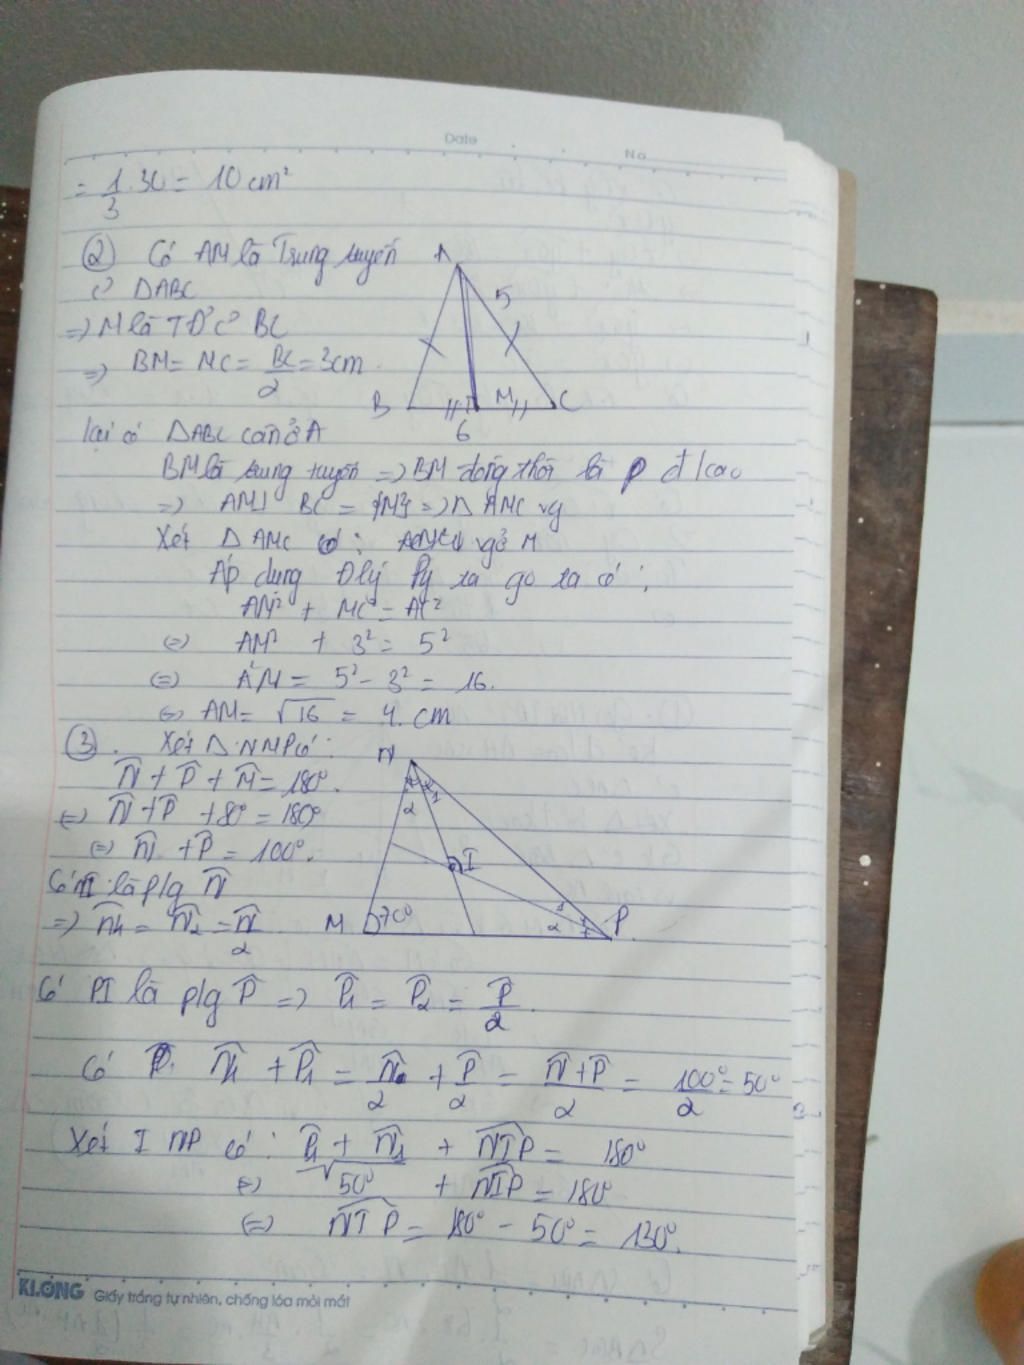 Date
No
= 1/3 . 30 = 10 cm²
② Có AM là Trung tuyến
A
c² ΔABC
5
=) M là TĐ c² BC
=) BM = MC = BC/2 = 3cm.
B M C
6
lại có ΔABC cân ở A
BM là trung tuyến =) BM đồng thời là đ/cao
=) AM⊥ BC = {M} =) Δ AMC vg
Xét Δ AMC có: vg ở M
Áp dụng Đlý Py ta go ta có:
AM² + MC² = AC²
(=) AM² + 3² = 5²
(=) AM² = 5² - 3² = 16.
(=) AM = √16 = 4. cm
③. Xét Δ NMP có:
N
N̂ + P̂ + M̂ = 180°.
2 1
(=) N̂ + P̂ + 80° = 180°
(=) N̂ + P̂ = 100°.
I
Có NI là p/g N̂
=) N̂₁ = N̂₂ = N̂/2
M 70° 1 2 P
Có PI là p/g P̂ =) P̂₁ = P̂₂ = P̂/2.
Có N̂₁ + P̂₁ = N̂/2 + P̂/2 = N̂+P̂/2 = 100°/2 = 50°
Xét I NP có: P̂₁ + N̂₁ + NIP = 180°
(=) 50° + NIP = 180°
(=) NIP = 180° - 50° = 130°.
KLONG Giấy trắng tự nhiên, chống lóa mỏi mắt